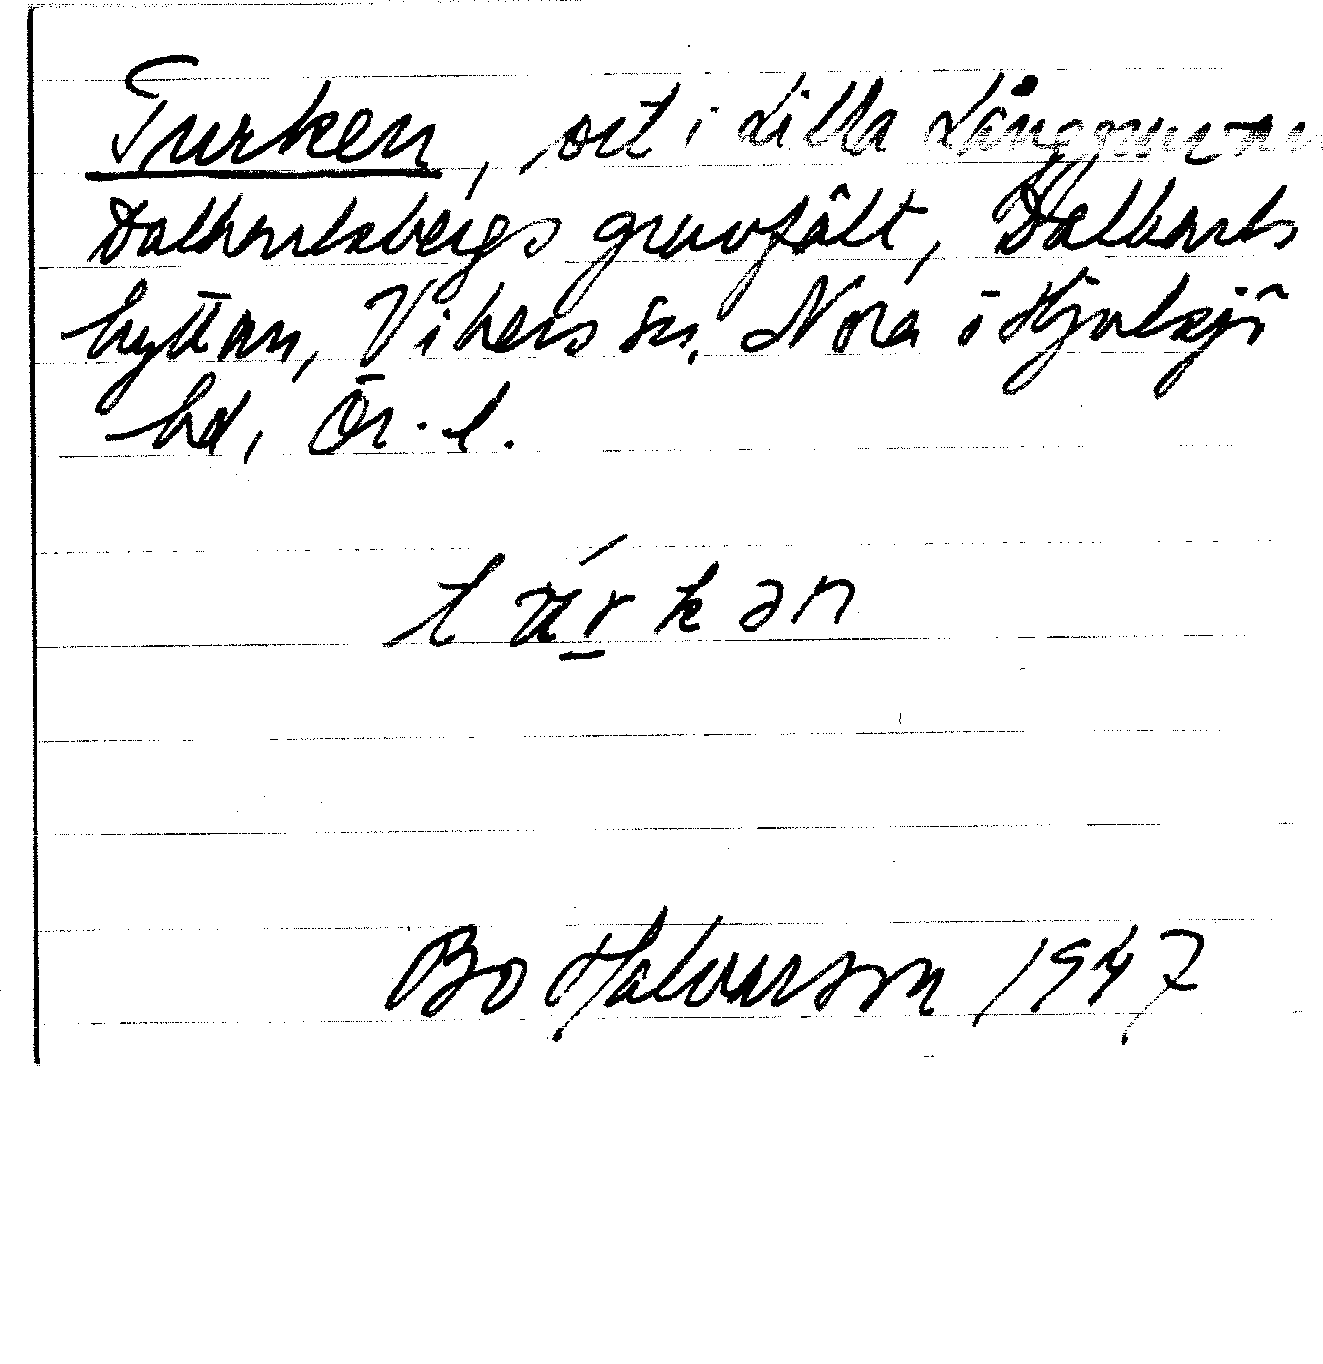 Turken, ort i Lilla Långgruvan
Dalkarlsbergs gruvfält, Dalkarls
hyttan, Vikers sn, Nora o Hjulsjö
hd, Ör. l.
Bo Halvarson 1947